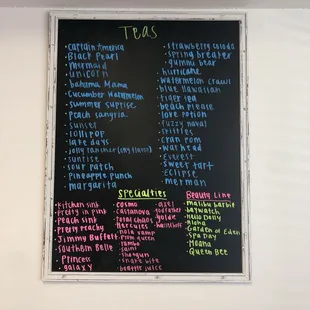 TEAS
·captain America
·Black Pearl
·mermaid
·unicorn
·bahama mama
·cucumber watermelon
·summer suprise
·peach sangria
·sunset
·lollipop
·lake days
·jolly rancher (any flavor)
·sunrise
·sour patch
·pineapple punch
·margarita
·strawberry colada
·spring breaker
·gummi bear
·hurricane
·watermelon crawl
·blue hawaiian
·tiger tea
·beach please
·love potion
·fuzzy naval
·skittles
·cran pom
·warhead
·Everest
·sweet tart
·Eclipse
·merman
Specialties
·kitchen sink
·pretty in pink
·peach sink
·pretty peachy
·Jimmy Buffett
·southern Belle
·Princess
·galaxy
·cosmo
·casanova
·total chaos
·Hercules
·nola vamp
·prom queen
·rambo
·saint
·shotgun
·snake bite
·beatle juice
·axel
·godfather
·goldie
Beauty Line
·malibu barbie
·baywatch
·Hello Dolly
·aloha
·Garden of Eden
·Spa Day
·Moana
·Queen Bee